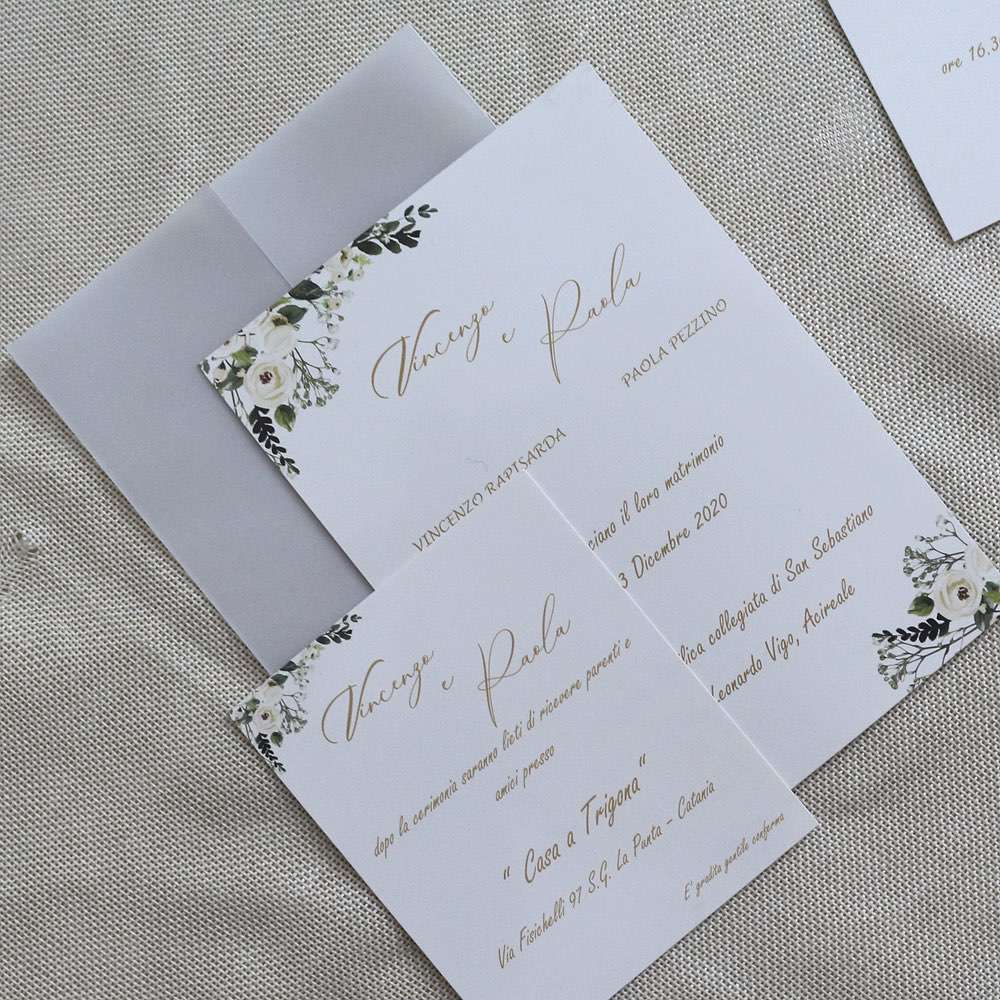 ore 16.3
Vincenzo e Paola
PAOLA PEZZINO
VINCENZO RAPISARDA
ciano il loro matrimonio
3 Dicembre 2020
lica collegiata di San Sebastiano
Leonardo Vigo, Acireale
Vincenzo e Paola
dopo la cerimonia saranno lieti di ricevere parenti e
amici presso
" Casa a Trigona "
Via Fisichelli 97 S.G. La Punta - Catania
E' gradita gentile conferma